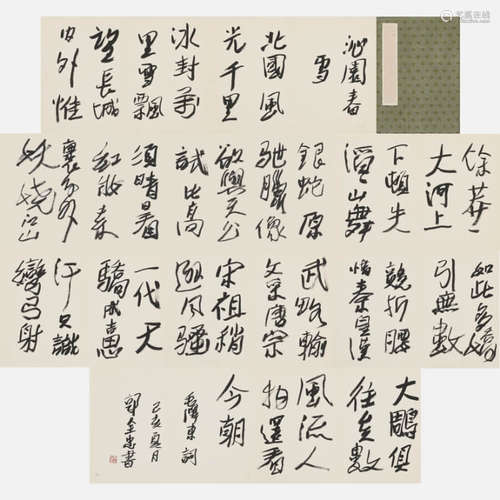 艺狐在线
沁園春
雪
北國風
光千里
冰封萬
里雪飄
望長城
内外惟
餘莽〻
大河上
下頓失
滔〻山舞
銀蛇原
馳臘像
欲與天公
試比高
須晴日看
紅妝素
裹分外
妖嬈江山
如此多嬌
引無數
競折腰
惜秦皇漢
武略輸
文采唐宗
宋祖稍
遜風騷
一代天
驕成吉思
汗只識
彎弓射
大鵰俱
往矣數
風流人
物還看
今朝
毛澤東詞
己亥夏月
郭全忠書